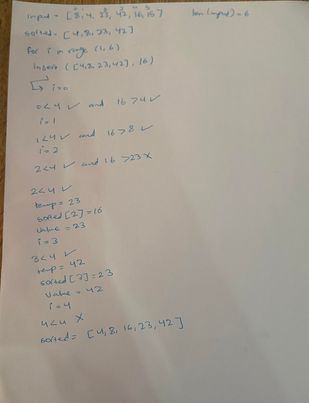 input = [8, 4, 23, 42, 16, 15] len(input) = 6
sorted = [4, 8, 23, 42]
for i in range (1, 6)
Insert ([4,8,23,42], 16)
i=0
0<4 ✓ and 16>4 ✓
i=1
1<4 ✓ and 16>8 ✓
i=2
2<4 ✓ and 16>23 ✗
2<4 ✓
temp = 23
sorted[2]=16
value = 23
i=3
3<4 ✓
temp = 42
sorted[3]=23
value = 42
i=4
4<4 ✗
sorted = [4, 8, 16, 23, 42]